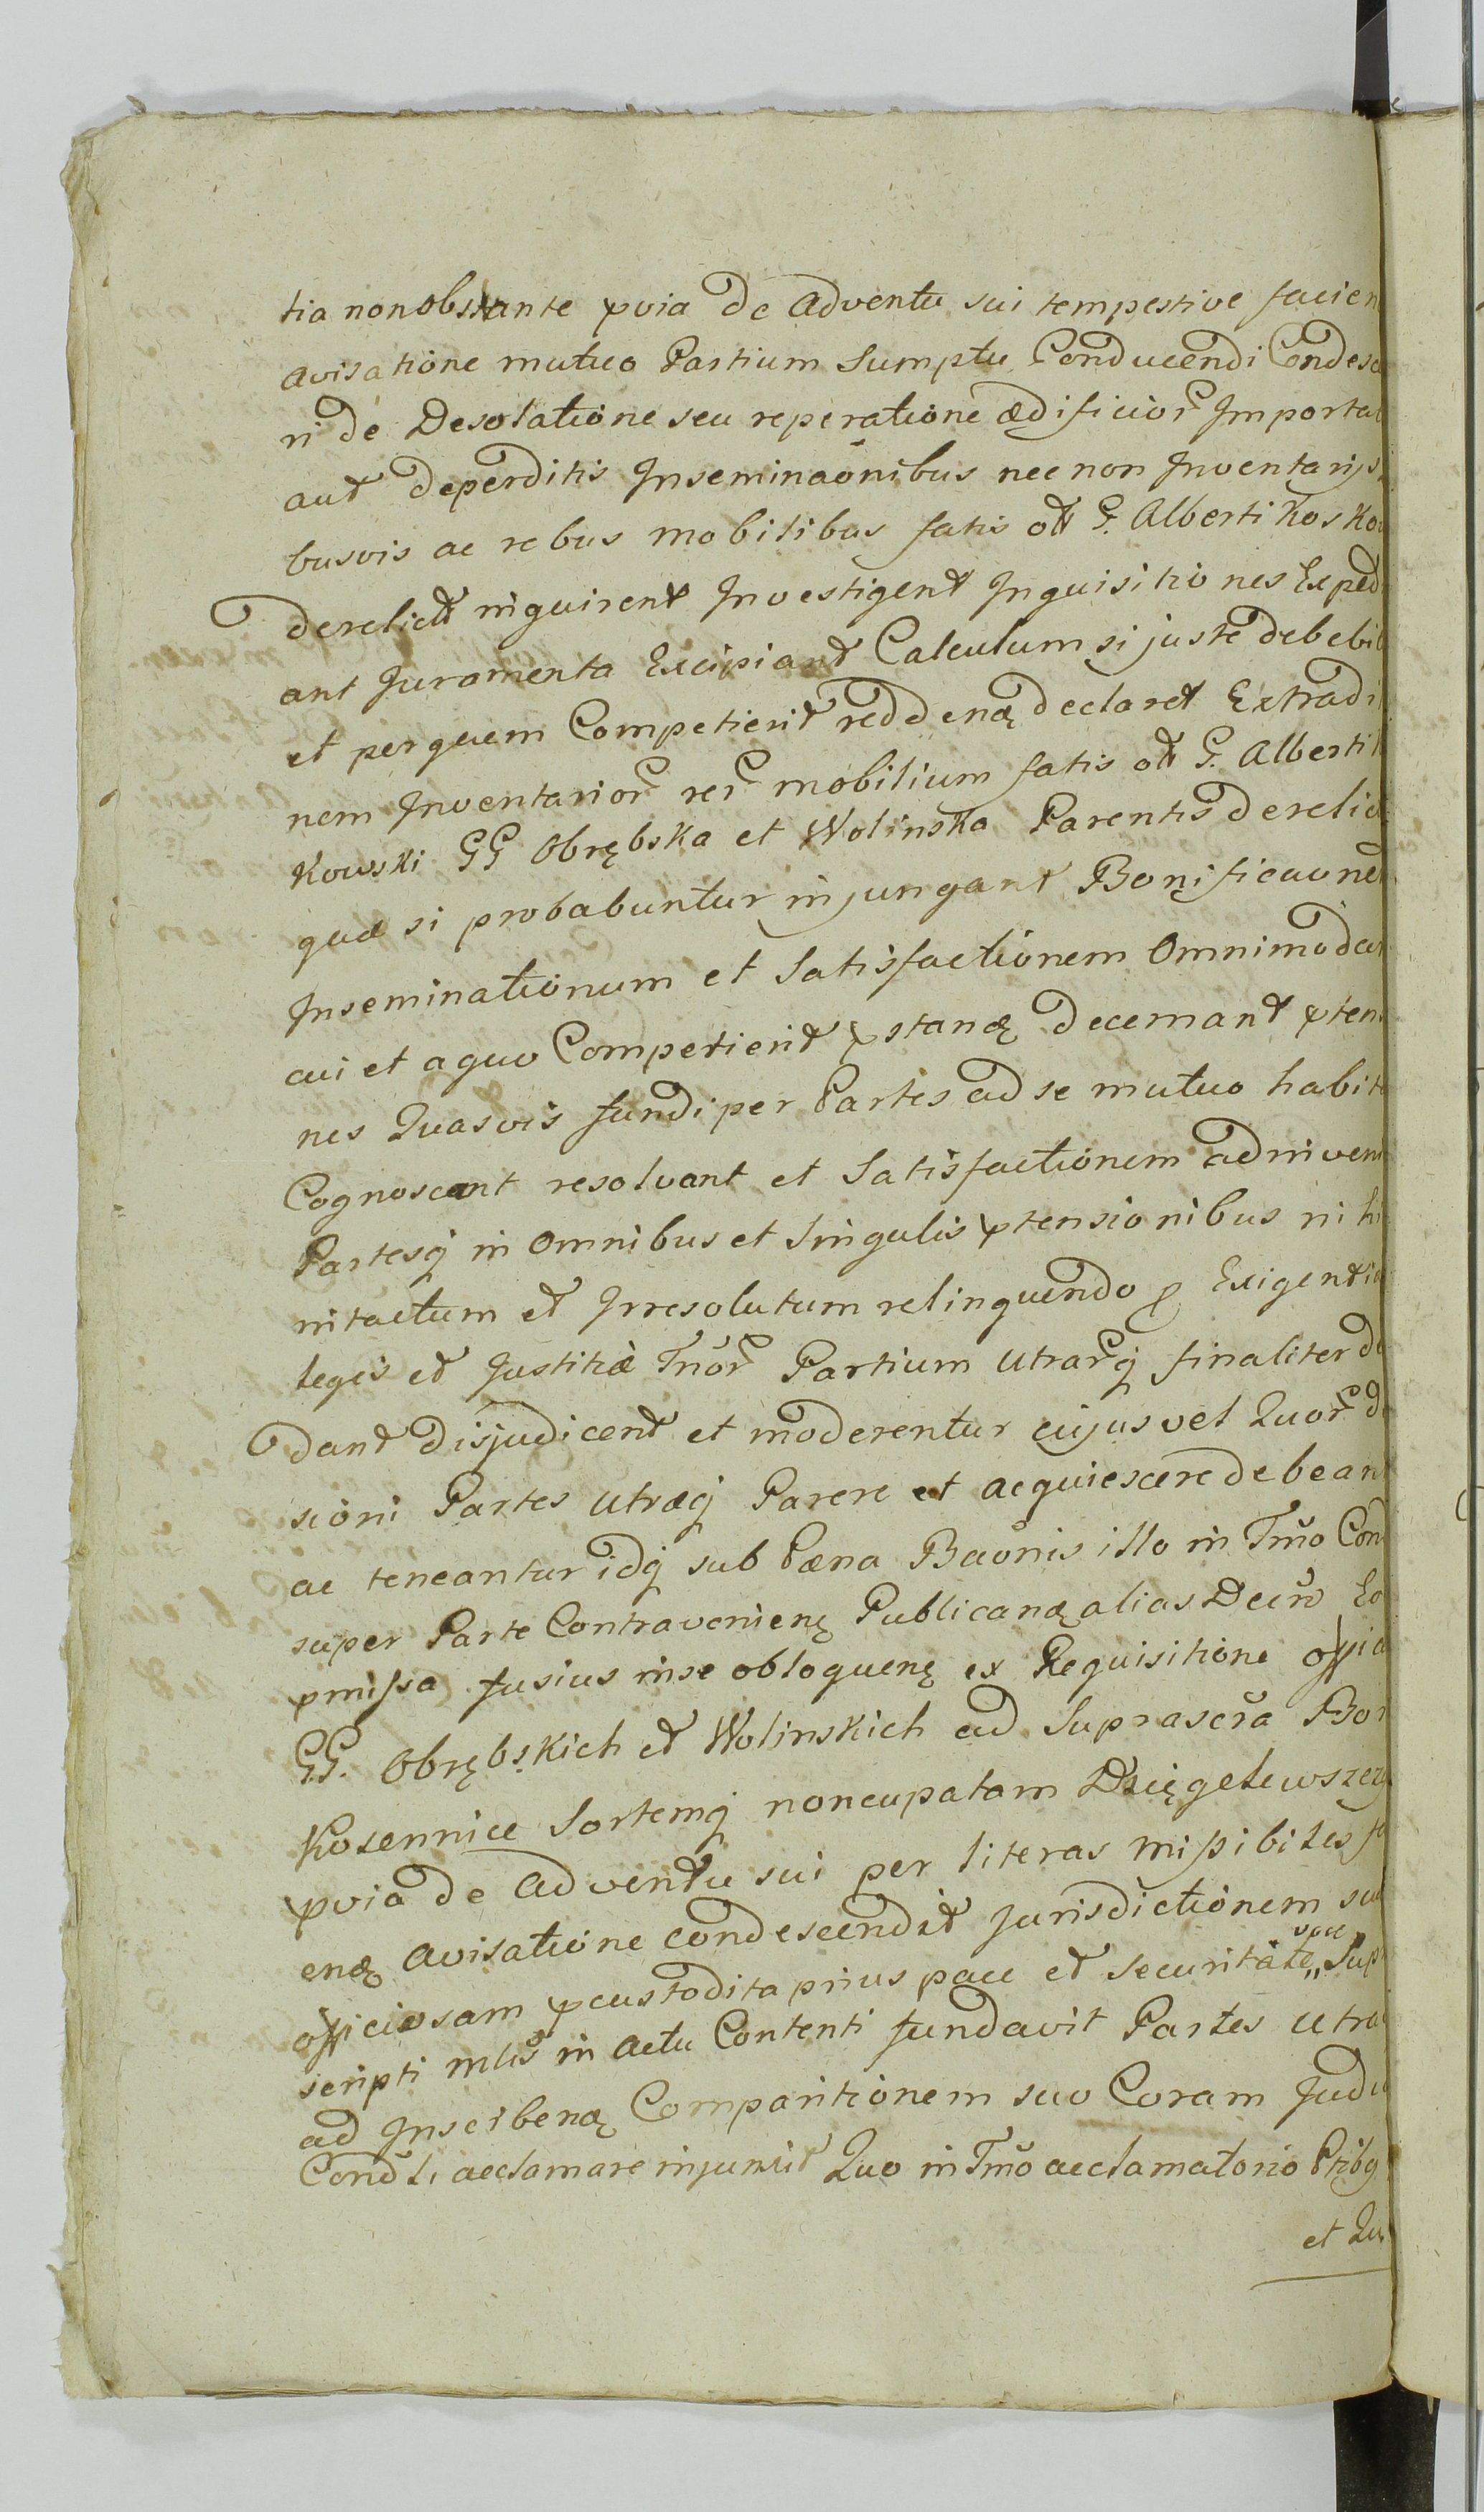 tia non obstante pvia De Adventu sui tempestive facien
avisatione mutuo Partium Sumptu Conducendi Condesc
ri de Desolatione seu reperatione ædificior Importat
aut Deperditis Inseminaõnibus nec non Inventarijs
busvis ac rebus mobilibus fatis ott G. Alberti Kosko
Derelict inquirent Investigent Inquisitiones Exped
ant Juramenta Excipiant Calculum si juste debebit
et per quem Competierit reddenꝗ declaret Extradi
nem Inventarior rer mobilium fatis ott G. Alberti
Kowski GG Obrębska et Wolinska Parentis derelic
quæ si probabuntur injungant Bonificaone
Inseminationum et Satisfactionem Omnimodam
cui et a quo Competierit pstanꝗ Decernant pten
nes Quasvis fundi per Partes ad se mutuo habit
Cognoscant resolvant et Satisfactionem adinveni
Partesq in Omnibus et Singulis ptensionibus nihi
intactum et Irresolutum relinquendo p Exigentia
legis et Justitiæ Tnõr Partium Utrarq finaliter De
Dant Disjudicent et moderentur cujus vel Quor de
sioni Partes Utræq Parere et acquiescere debeant
ac teneantur idq sub Pæna Baõnis illo in Tmõ Con
super Parte Contravenienꝗ Publicanꝗ alias Decrõ Eo
pmissa fusius in se obloquenꝗ ex Requisitione offia
GG. Obrębskich et Wolinskich ad Suprascrã Bon
Kosennice Sortemq noncupatam Dzięgelewszczy
pvia de Adventu sui per literas missibiles f
enꝗ avisatione condescendit Jurisdictionem su
officiosam pcustodita prius pace et Securitate „ Sup
scripti mlis in actu Contenti fundavit Partes Utra
ad Inscibenꝗ Comparitionem suo Coram Judi
Cond̃li acclamare injunxit Quo in Tmõ acclamatorio Ptibq
et Qu